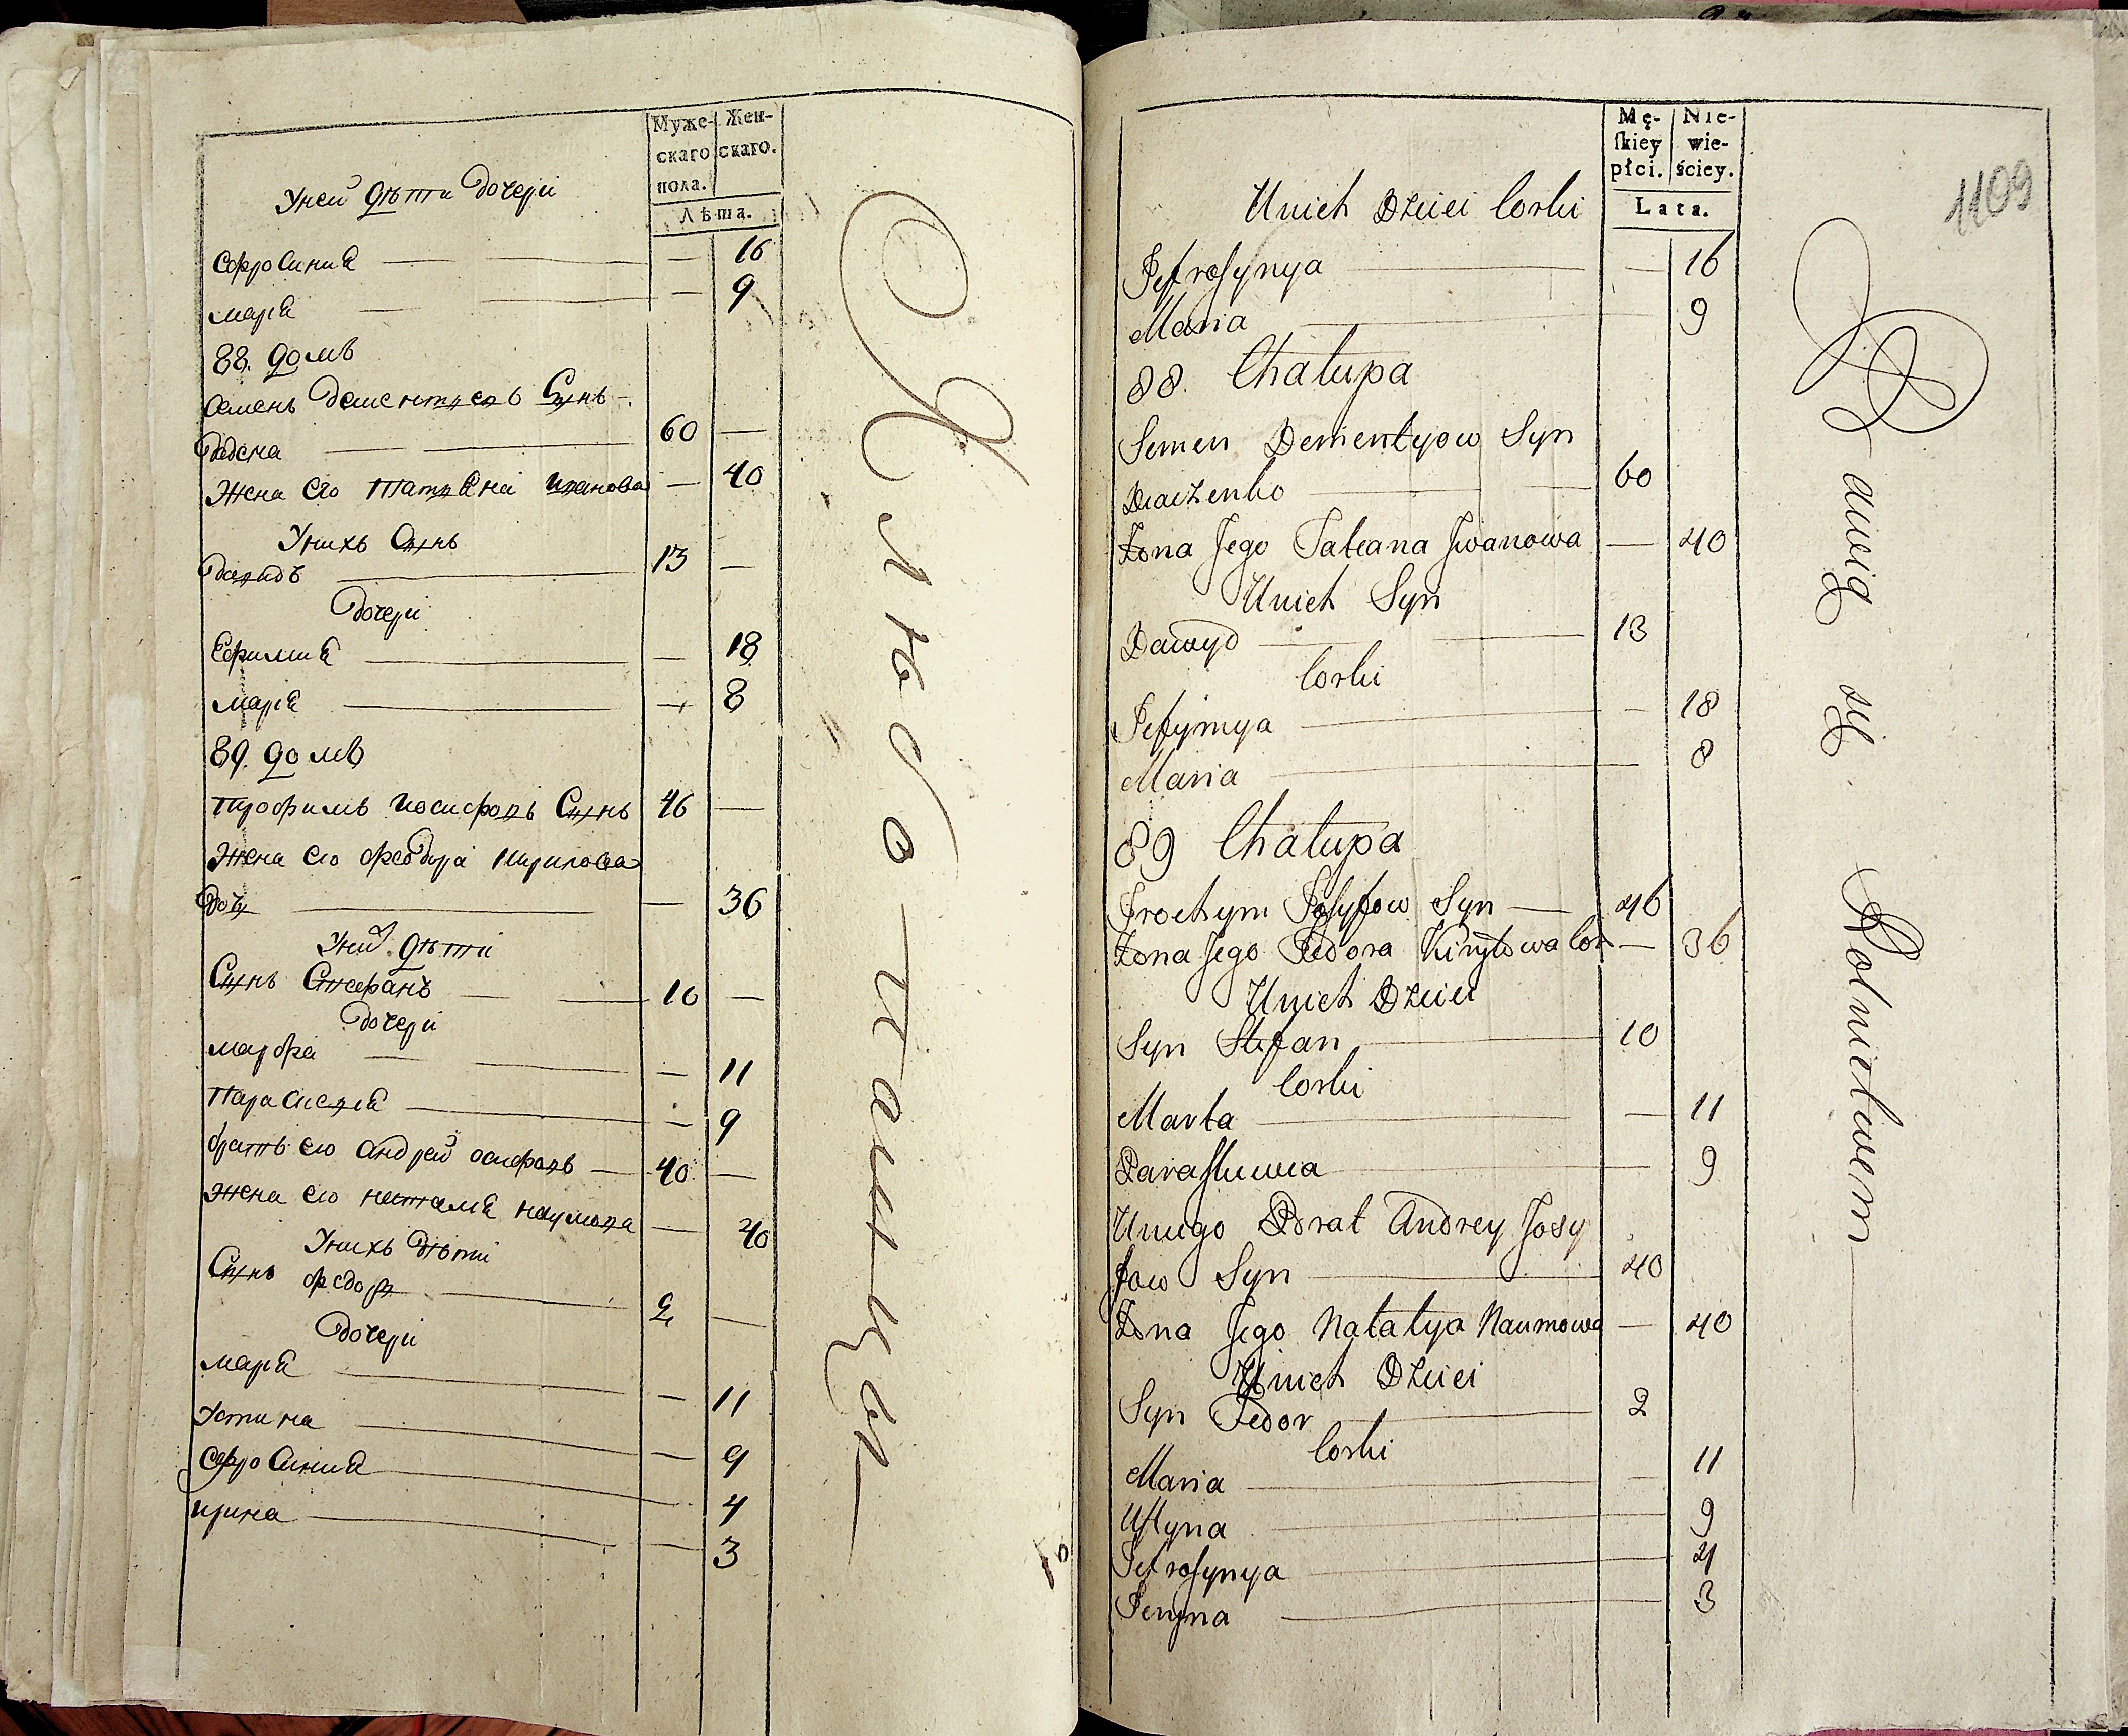 Муже-
скаго
пола.
Жен-
скаго.
Лѣта.
Уней дѣти дочери
Ефросиниа 16
мариа 9
88. домъ
Семенъ дементиевъ Сынъ
60
Жена его татиана иванова 40
Унихъ Сынъ
давидъ 13
дочери
Ефимиа 18
мариа 8
89. домъ
трофимъ иосифовъ Сынъ 46
Жена его феодора кирилова
дочь 36
Уних дѣти
Сынъ Стефанъ 10
дочери
марфа 11
Параскевиа 9
братъ его андрей осифовъ 40
жена его наталиа наумова 40
Унихъ дѣти
Сынъ федор 2
дочери
мариа 11
Устина 9
Ефросиниа 4
ирина 3
Хлѣбопашцы
1109
Mę-
ſkiey
płci.
Nie-
wie-
ściey.
Lata.
Unieh Dziei Corki
Jefrosynya 16
Maria 9
88. Chalupa
Semen Dementyow Syn
60
Zona Jego Tateana Jwanowa 40
Unieh Syn
Dawyd 13
Corki
Jefymya 18
Maria 8
89 Chalupa
Trochym Josyfow Syn 46
Zona Jego Fedora Kiryłowa Cor 36
Unieh Dziei
Syn Stefan 10
Corki
Marta 11
Paraskiewia 9
Uniego Brat Andrey Josy
fow Syn 40
Zona Jego Natalya Naumowa 40
Unieh Dziei
Syn Fedor 2
Corki
Maria 11
Ustyna 9
Jefrosynya 4
Jeryna 3
Bawią się Rolnictwem